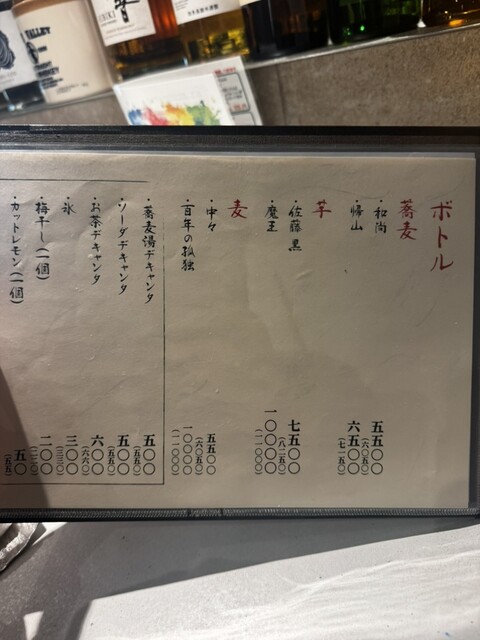 ボトル
蕎麦
・和尚 五五〇〇
(六〇五〇)
・帰山 六五〇〇
(七一五〇)
芋
・佐藤 黒 七五〇〇
(八二五〇)
・魔王 一〇〇〇〇
(一一〇〇〇)
麦
・中々 五五〇〇
(六〇五〇)
・百年の孤独 一〇〇〇〇
(一一〇〇〇)
・蕎麦湯デキャンタ 五〇〇
(五五〇)
・ソーダデキャンタ 五〇〇
(五五〇)
・お茶デキャンタ 六〇〇
(六六〇)
・氷 三〇〇
(三三〇)
・梅干し(一個) 二〇〇
(二二〇)
・カットレモン(一個) 五〇
(五五)
VALLEY